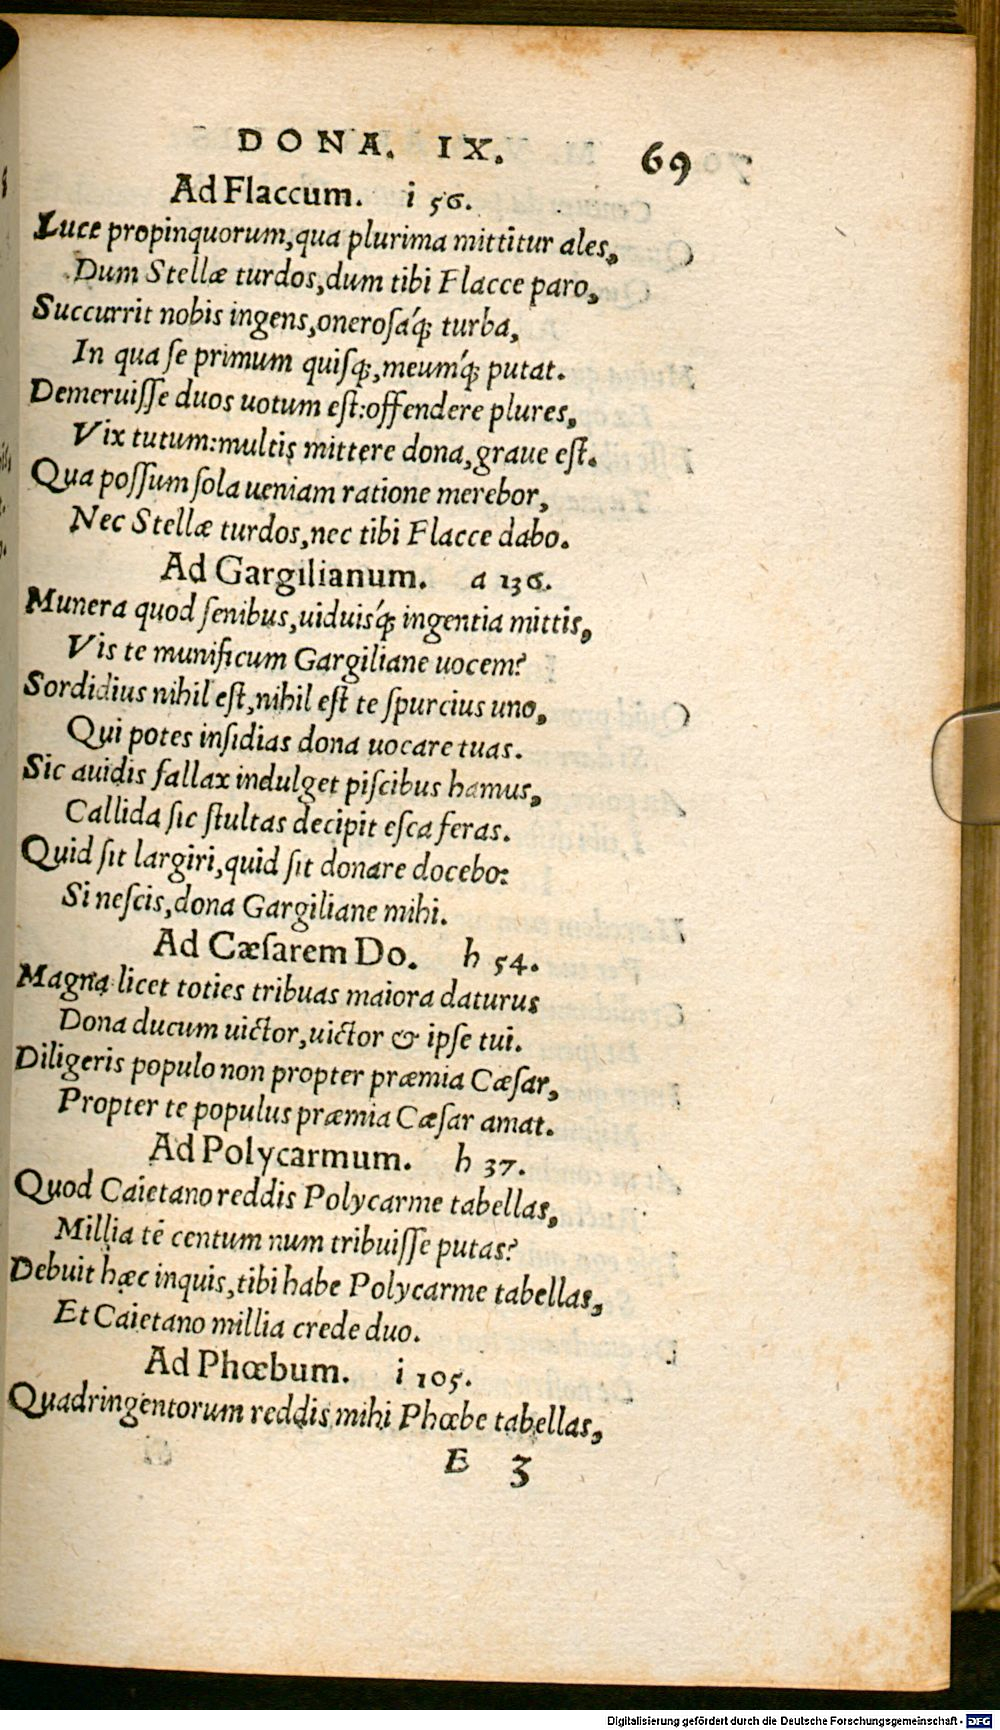 DONA. IX. 69
Ad Flaccum. i 56.
Luce propinquorum,qua plurima mittitur ales,
Dum Stellæ turdos,dum tibi Flacce paro,
Succurrit nobis ingens,onerosáq; turba,
In qua se primum quisq;,meumq́; putat.
Demeruiſſe duos uotum eſt:offendere plures,
Vix tutum:multis mittere dona,graue eſt.
Qua poſſum ſola ueniam ratione merebor,
Nec Stellæ turdos,nec tibi Flacce dabo.
Ad Gargilianum. a 136.
Munera quod ſenibus,uiduisq́; ingentia mittis,
Vis te munificum Gargiliane uocem?
Sordidius nihil eſt,nihil eſt te ſpurcius uno,
Qui potes inſidias dona uocare tuas.
Sic auidis fallax indulget piſcibus hamus,
Callida ſic ſtultas decipit eſca feras.
Quid ſit largiri,quid ſit donare docebo:
Si neſcis,dona Gargiliane mihi.
Ad Cæſarem Do. h 54.
Magna licet toties tribuas maiora daturus
Dona ducum uictor,uictor & ipſe tui.
Diligeris populo non propter præmia Cæſar,
Propter te populus præmia Cæſar amat.
Ad Polycarmum. h 37.
Quod Caietano reddis Polycarme tabellas,
Millia té centum num tribuiſſe putas?
Debuit hæc inquis,tibi habe Polycarme tabellas,
Et Caietano millia crede duo.
Ad Phœbum. i 105.
Quadringentorum reddis mihi Phœbe tabellas,
E 3
Digitalisierung gefördert durch die Deutsche Forschungsgemeinschaft - DFG